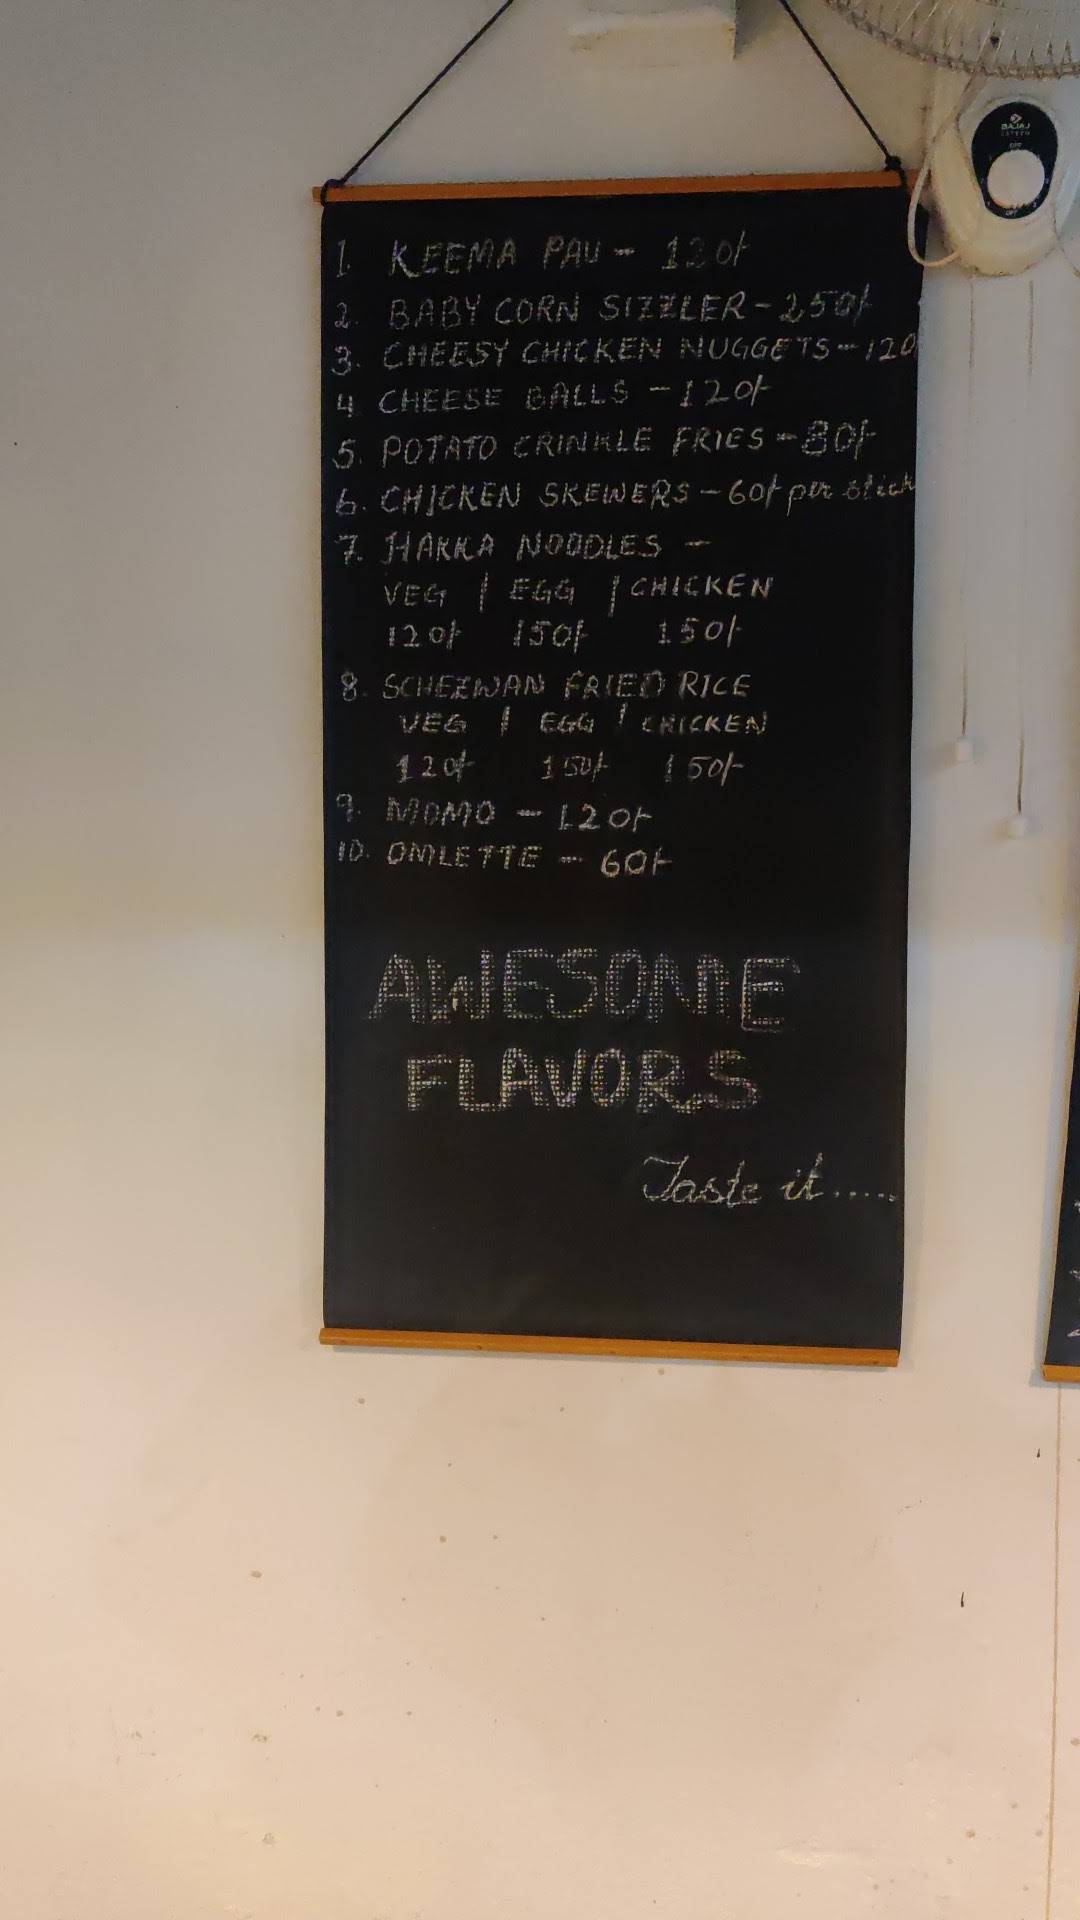 1. KEEMA PAU - 120/-
2. BABY CORN SIZZLER - 250/-
3. CHEESY CHICKEN NUGGETS - 120
4 CHEESE BALLS - 120/-
5. POTATO CRINKLE FRIES - 80/-
6. CHICKEN SKEWERS - 60/- per stick
7. HAKKA NOODLES -
VEG | EGG | CHICKEN
120/- 150/- 150/-
8. SCHEZWAN FRIED RICE
VEG | EGG | CHICKEN
120/- 150/- 150/-
9. MOMO - 120/-
10. OMLETTE - 60/-
AWESOME
FLAVORS
Taste it.....
BAJAJ
OFF
OFF